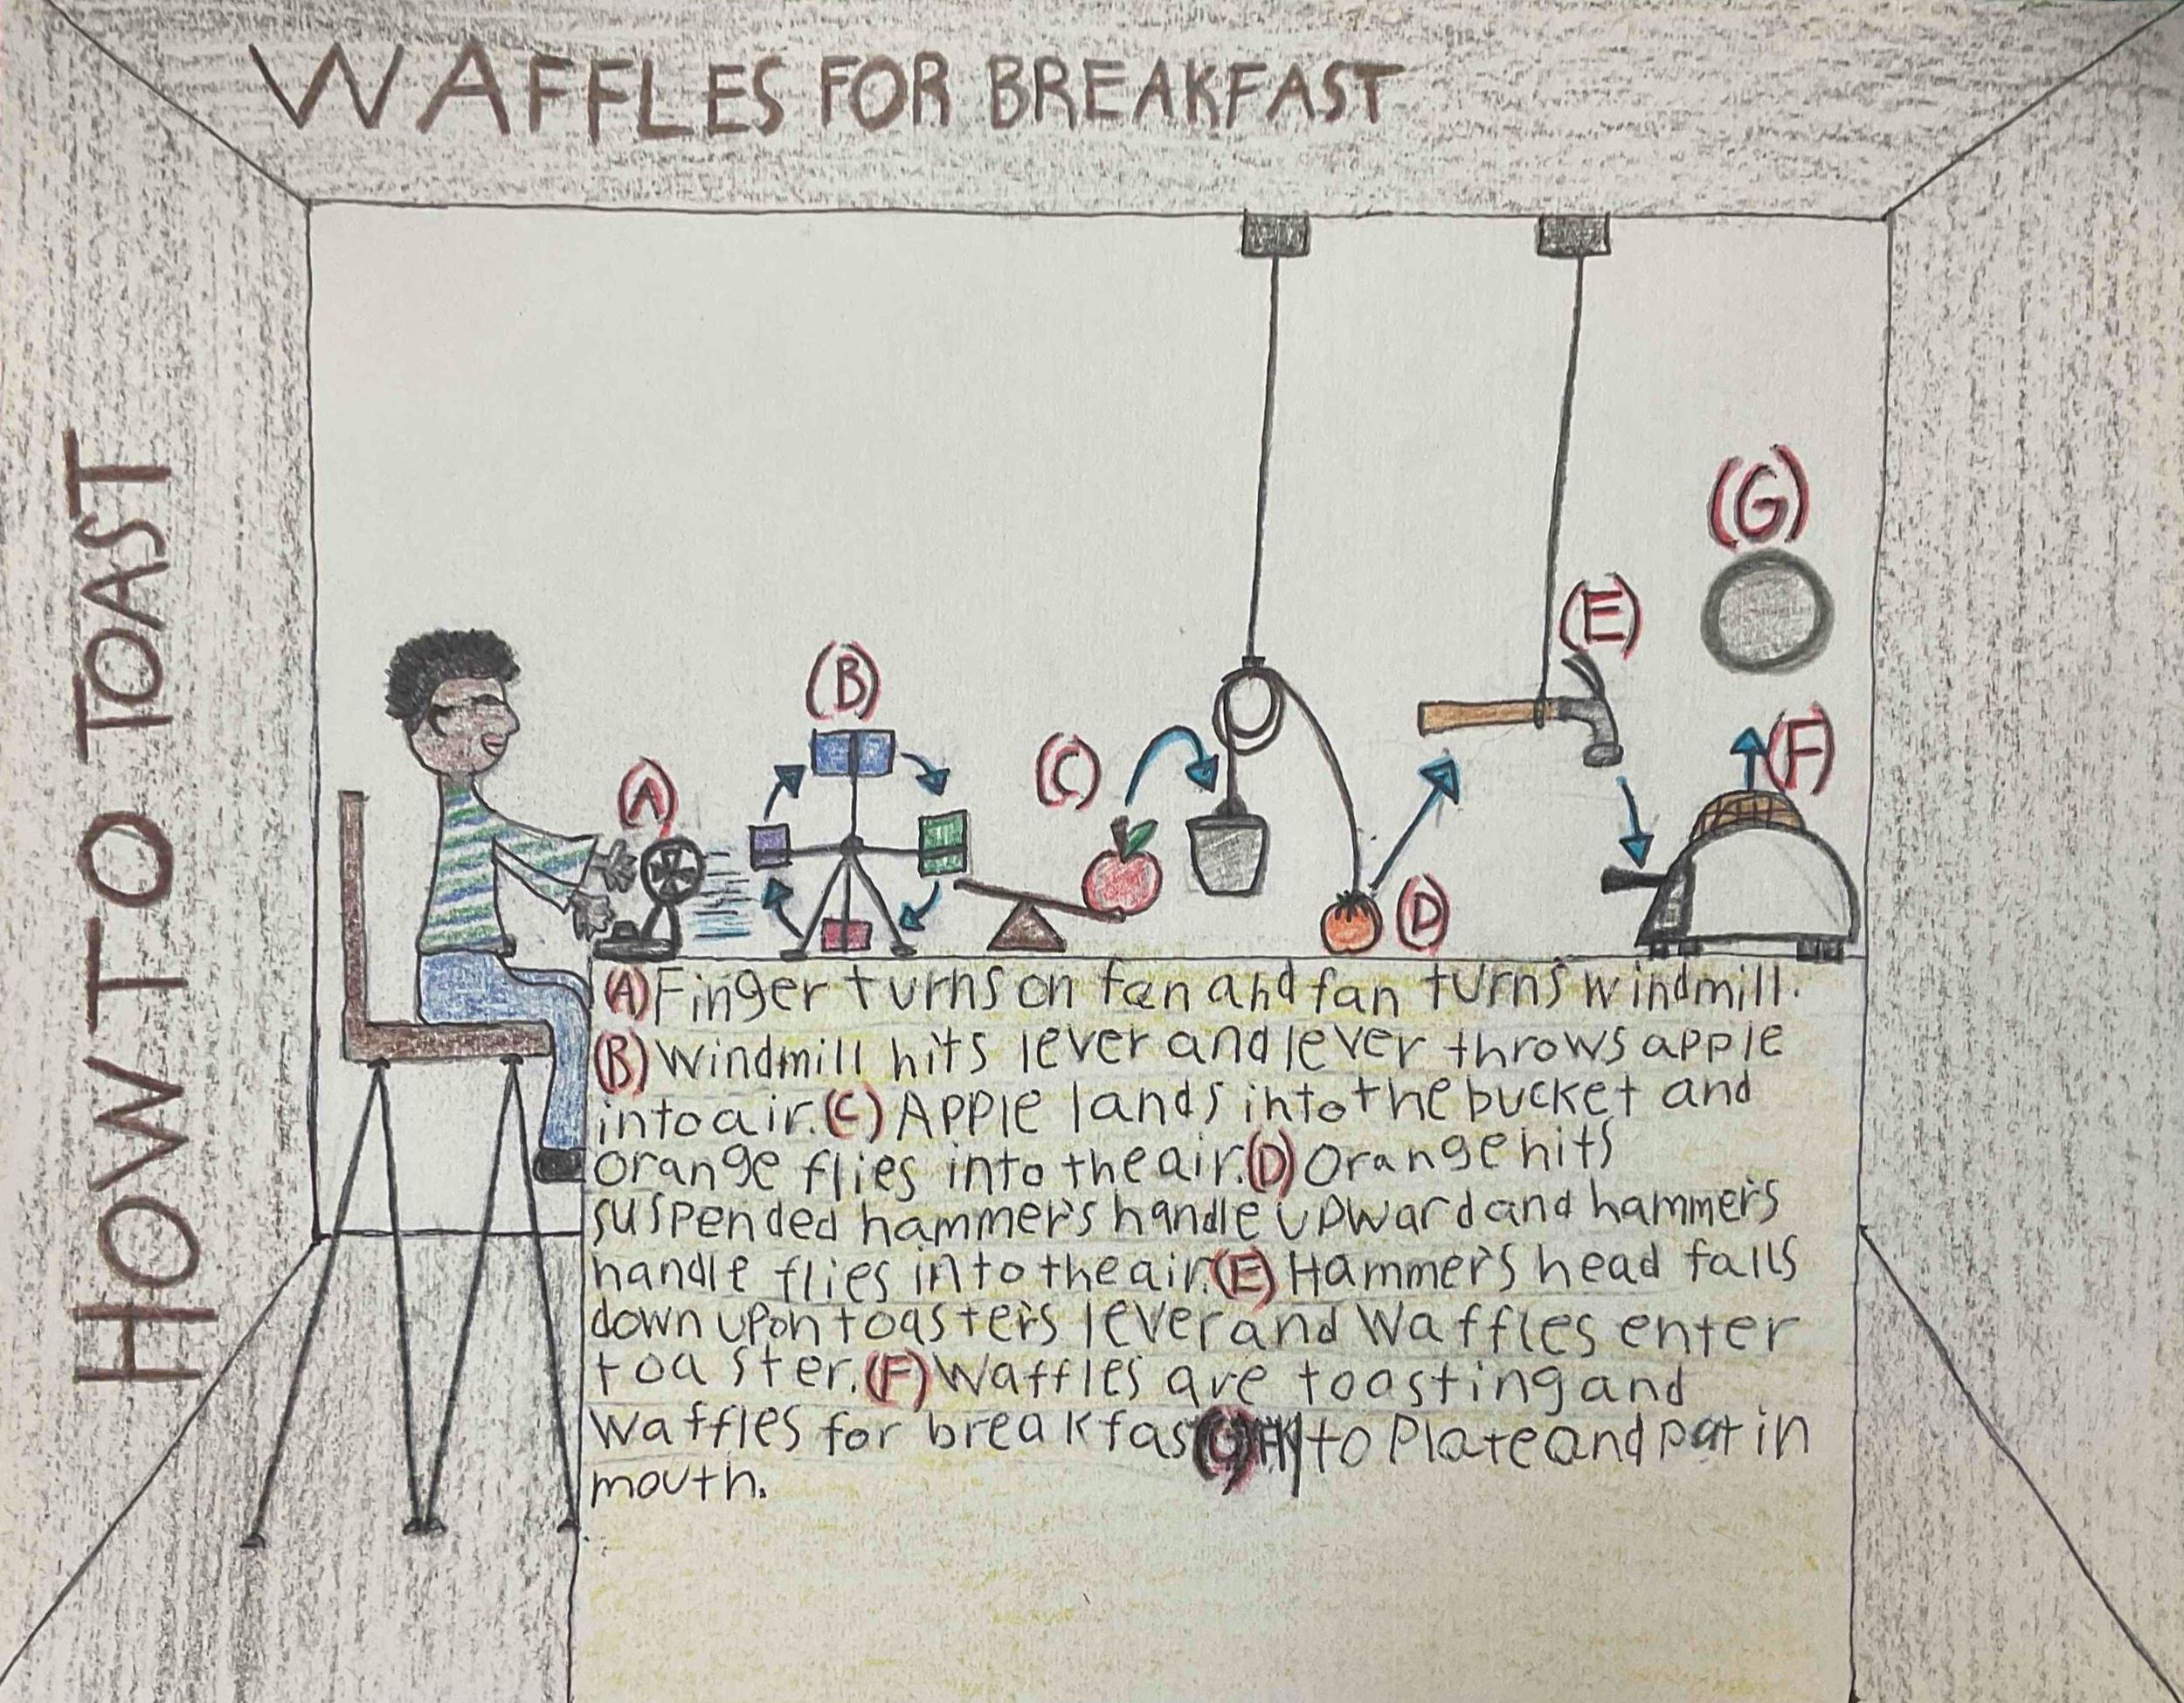 WAFFLES FOR BREAKFAST
HOW TO TOAST
(A)
(B)
(C)
(D)
(E)
(F)
(G)
(A) Finger turns on fan and fan turns windmill.
(B) Windmill hits lever and lever throws apple
into air. (C) Apple lands into the bucket and
orange flies into the air. (D) Orange hits
suspended hammer's handle upward and hammer's
handle flies into the air. (E) Hammer's head falls
down upon toaster's lever and Waffles enter
toaster. (F) Waffles are toasting and
Waffles for breakfast (G) to Plate and put in
mouth.